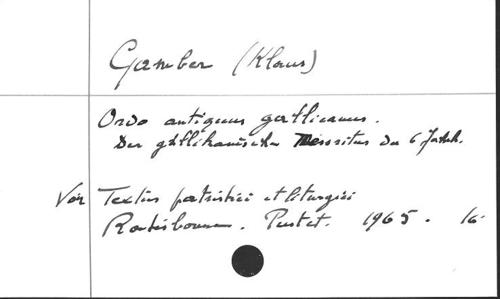 Gamber (Klaus)
Ordo antiquus gallicanus.
Der gallikanische Messritus des 6 Jahrh.
Voir Textus patristici et liturgici
Ratisbonne. Pustet. 1965. 16